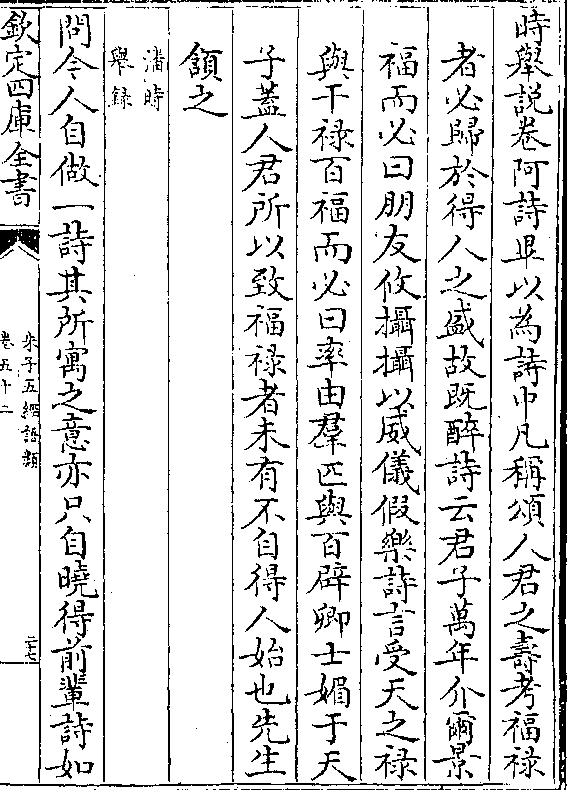 時舉説卷阿詩畢以為詩中凡稱頌人君之壽考福禄
者必歸於得人之盛故既醉詩云君子萬年介爾景
福而必曰朋友攸攝攝以威儀假樂詩言受天之禄
與干禄百福而必曰率由羣匹與百辟卿士媚于天
子蓋人君所以致福禄者未有不自得人始也先生
頷之
潘時
舉録
問令人自做一詩其所寓之意亦只自曉得前輩詩如
欽定四庫全書
朱子五經語類
卷五十二
二十七